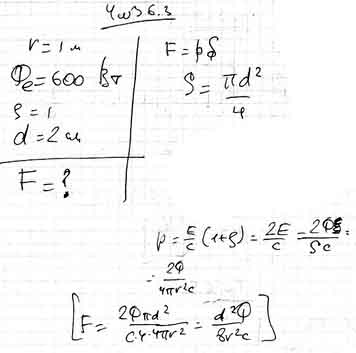 Чов36.3
r = 1 м
Φe = 600 Вт
ρ = 1
d = 2 см
F = ?
F = pS
S = πd²/4
p = E/c (1+ρ) = 2E/c = 2Φ/Sc =
= 2Φ/4πr²c
[F = 2Φπd²/c·4·4πr² = d²Φ/8r²c]